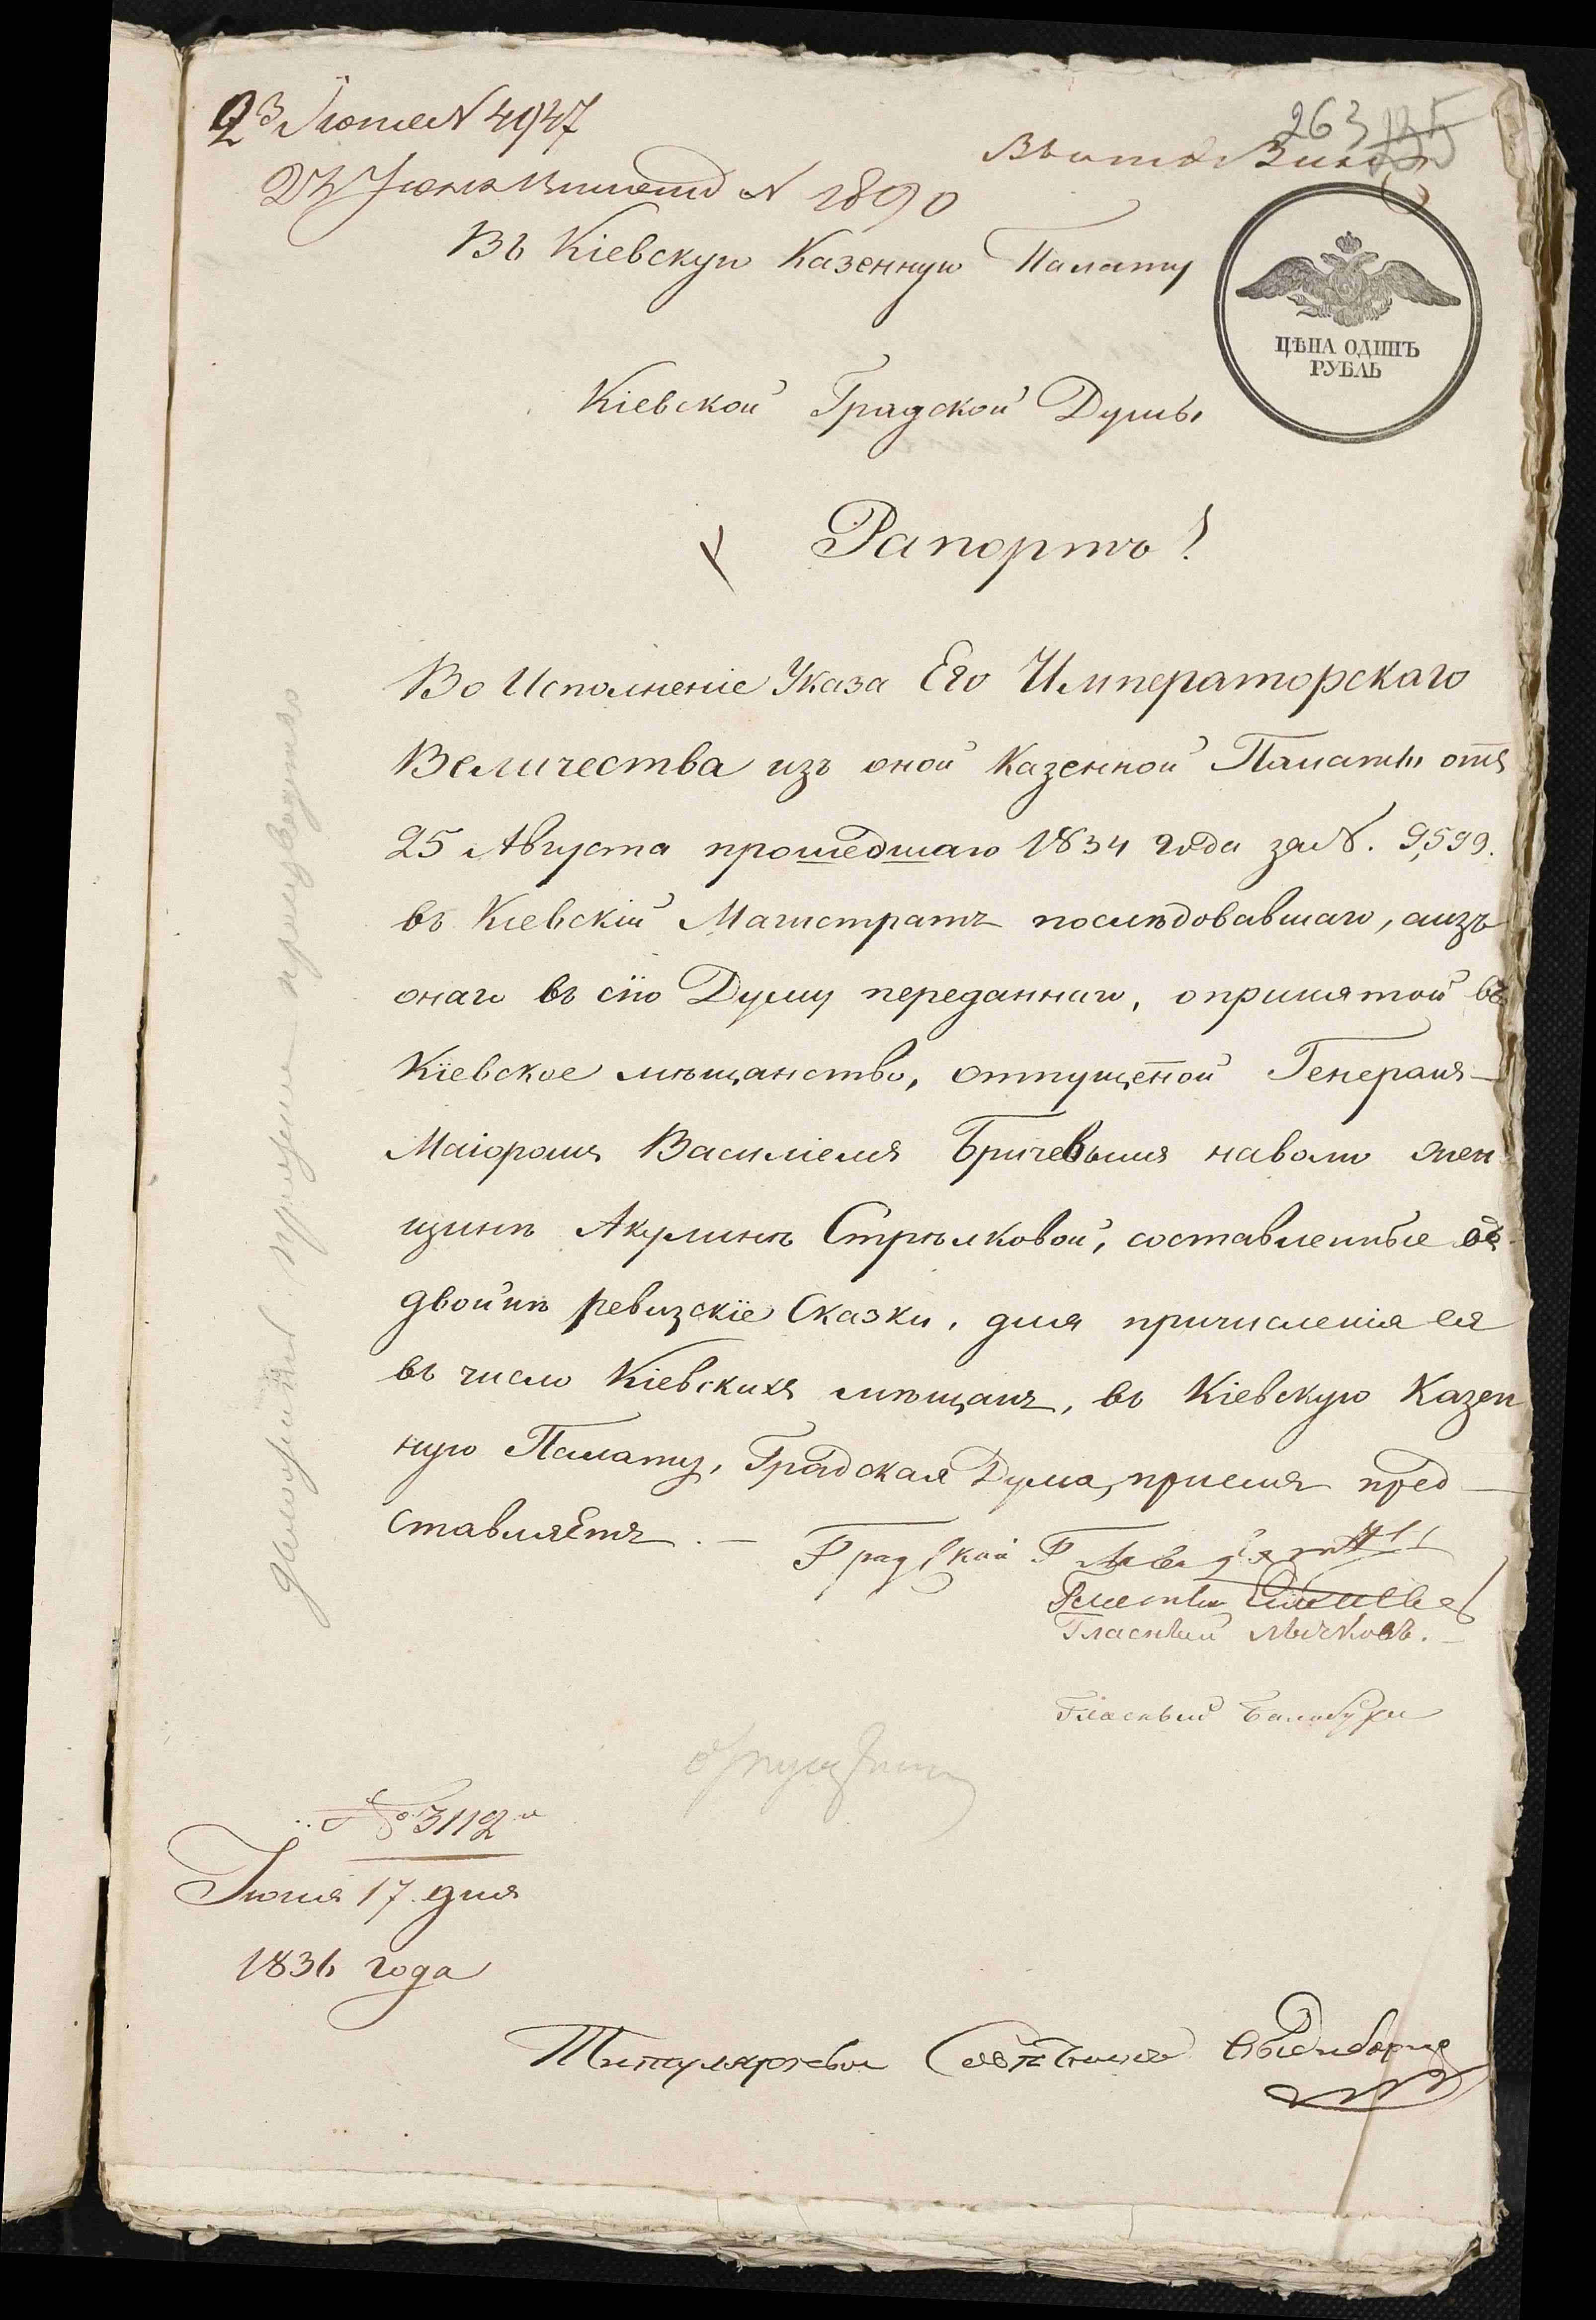 23 Июня N 4947
263
23 Июня N 1890
Въ Кіевскую Казенную Палату
ЦѢНА ОДИНЪ
РУБЛЬ
Кіевской Градской Думы
Рапортъ!
Во Исполненіе Указа Его Императорскаго
Величества изъ оной Казенной Палаты отъ
25 Августа прошедшаго 1834 года за N. 9,599.
въ Кіевскій Магистратъ последовавшаго, а изъ
онаго въ сію Думу переданнаго, о принятой въ
Кіевское мѣщанство, отпущеной Генералъ-
Маіоромъ Василіемъ Бричевымъ на волю жен
щинѣ Акулинѣ Стрѣлковой, составленные въ
двойнѣ ревизскіе Сказки, для причисленія ея
въ число Кіевскихъ мѣщанъ, въ Кіевскую Казен
ную Палату, Градская Дума, присемъ пред—
ставляетъ. —
Градской Глава
Гласный
Гласный
№ 3112
Іюня 17 дня
1836 года
Титулярный Совѣтникъ